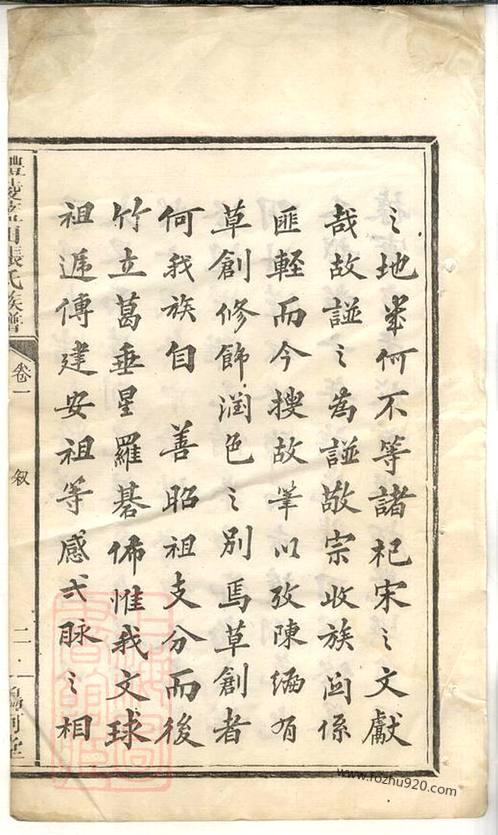 之地幾何不等諸杞宋之文獻
哉故譜之為譜敬宗收族関係
匪輕而今搜故筆以攷陳編有
草創修飾潤色之別焉草創者
何我族自善昭祖支分而後
竹立葛垂星羅碁佈惟我文球
祖遞傳建安祖等感弌脉之相
張氏族譜
卷一
叙
二
www.fozhu920.com